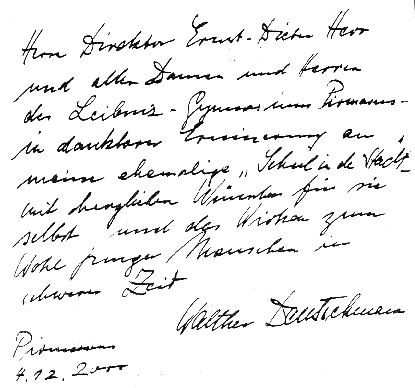 Herrn Direktor Ernst-Dieter Herr
und allen Damen und Herren
des Leibniz-Gymnasiums Pirmasens
in dankbarer Erinnerung an
meine ehemalige „Schul in de Stadt"
mit herzlichen Wünschen für sie
selbst und das Wirken zum
Wohl junger Menschen in
schwerer Zeit
Walther Deutschmann
Pirmasens
4.12.2000